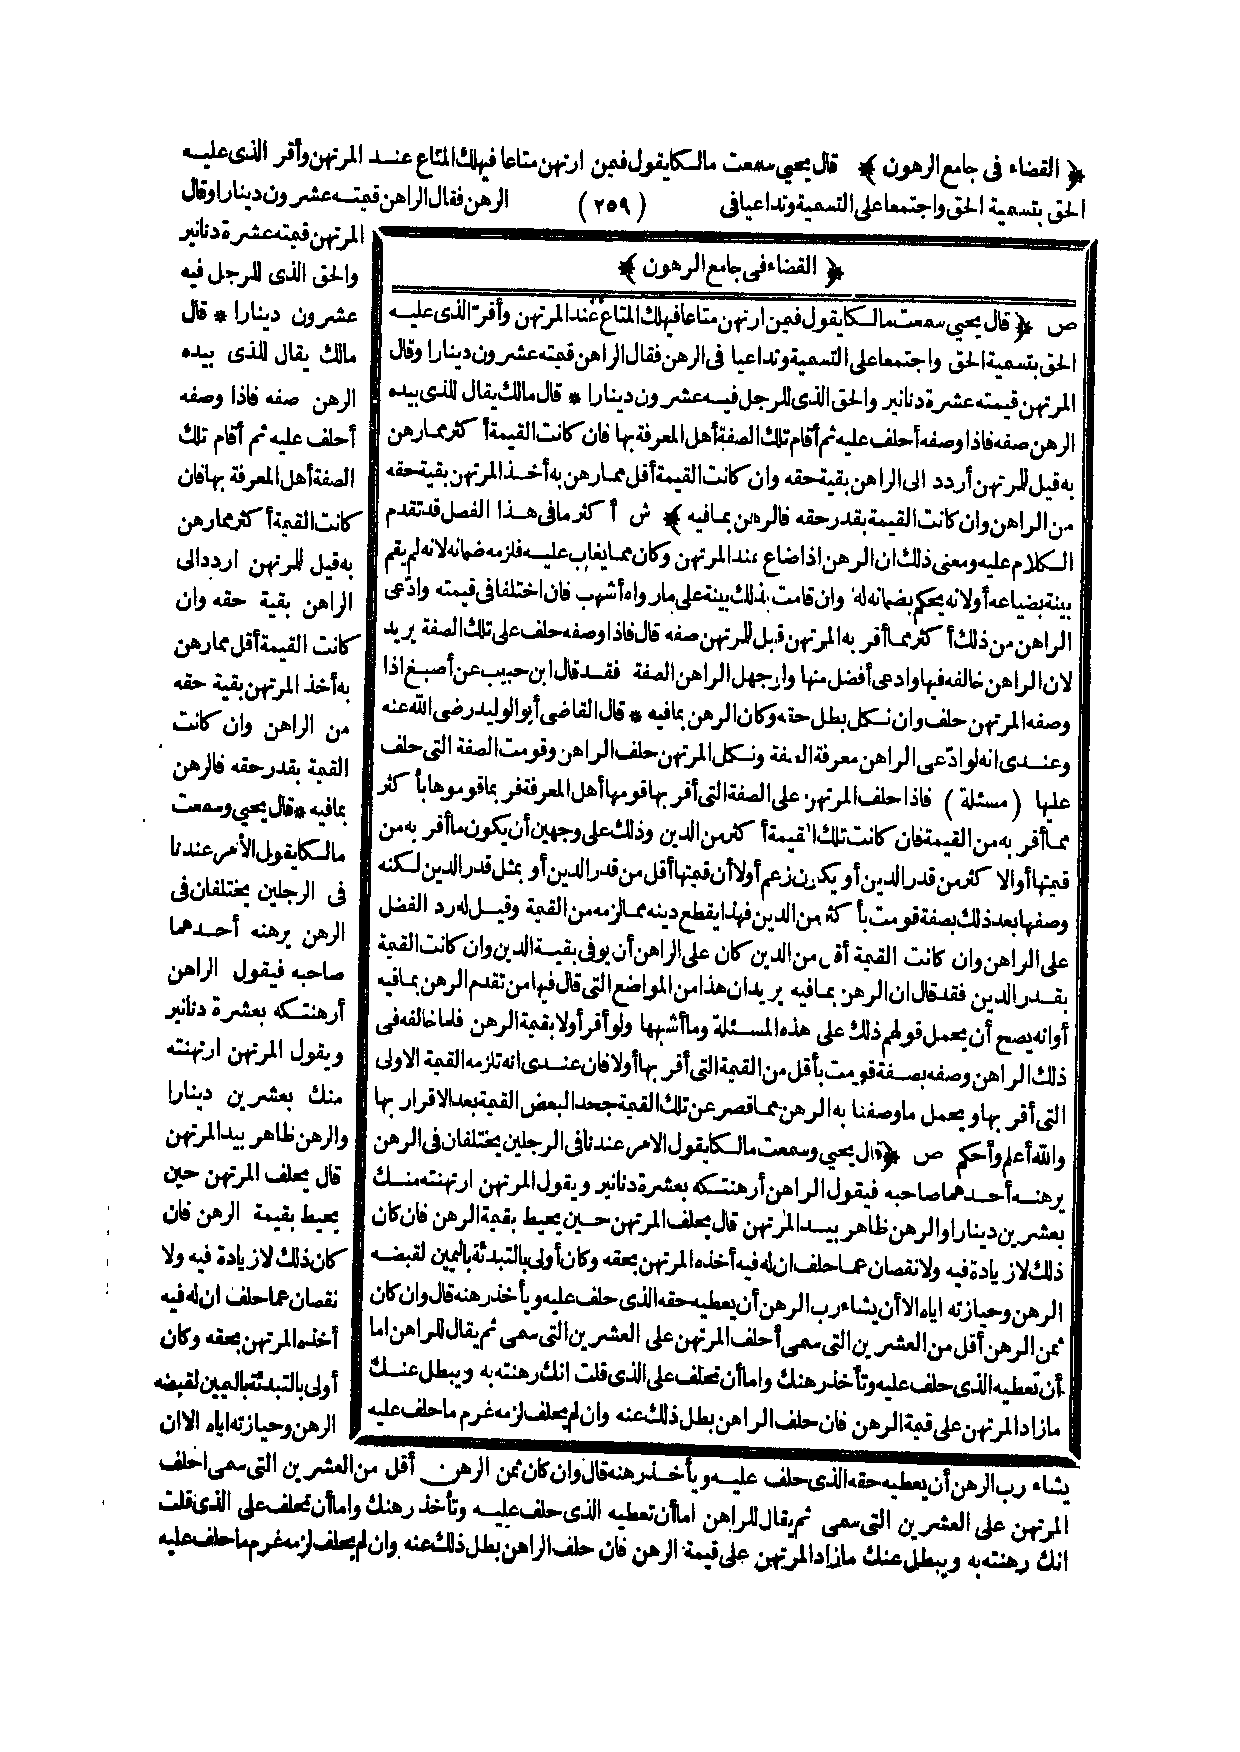 ﴿ القضاء فى جامع الرهون ﴾ قال يحيى سمعت مالكا يقول فيمن ارتهن متاعا فهلك المتاع عند المرتهن وأقر الذى عليه
الحق بتسمية الحق واجتمعا على التسمية وتداعيا فى (٢٥٩) الرهن فقال الراهن قيمته عشرون دينارا وقال
المرتهن قيمته عشرة دنانير
والحق الذى للرجل فيه
عشرون دينارا * قال
مالك يقال للذى بيده
الرهن صفه فاذا وصفه
أحلف عليه ثم أقام تلك
الصفة أهل المعرفة بها فان
كانت القيمة أكثر مما رهن
به قيل للمرتهن اردد الى
الراهن بقية حقه وان
كانت القيمة أقل مما رهن
به أخذ المرتهن بقية حقه
من الراهن وان كانت
القيمة بقدر حقه فالرهن
بما فيه * قال يحيى وسمعت
مالكا يقول الأمر عندنا
فى الرجلين يختلفان فى
الرهن يرهنه أحدهما
صاحبه فيقول الراهن
أرهنتكه بعشرة دنانير
ويقول المرتهن ارتهنته
منك بعشرين دينارا
والرهن ظاهر بيد المرتهن
قال يحلف المرتهن حين
يحيط بقيمة الرهن فان
كان ذلك لا زيادة فيه ولا
نقصان عما حلف ان له فيه
أخذه المرتهن بحقه وكان
أولى بالتبدئة باليمين لقبضه
الرهن وحيازته اياه الا ان
يشاء رب الرهن أن يعطيه حقه الذى حلف عليه ويأخذ رهنه قال وان كان ثمن الرهن أقل من العشرين التى سمى احلف
المرتهن على العشرين التى سمى ثم يقال للراهن اما أن تعطيه الذى حلف عليه وتأخذ رهنك واما أن تحلف على الذى قلت
انك رهنته به ويبطل عنك ما زاد المرتهن على قيمة الرهن فان حلف الراهن بطل ذلك عنه وان لم يحلف لزمه غرم ما حلف عليه
﴿ القضاء فى جامع الرهون ﴾
ص ﴿ قال يحيى سمعت مالكا يقول فيمن ارتهن متاعا فهلك المتاع عند المرتهن وأقر الذى عليه
الحق بتسمية الحق واجتمعا على التسمية وتداعيا فى الرهن فقال الراهن قيمته عشرون دينارا وقال
المرتهن قيمته عشرة دنانير والحق الذى للرجل فيه عشرون دينارا * قال مالك يقال للذى بيده
الرهن صفه فاذا وصفه أحلف عليه ثم أقام تلك الصفة أهل المعرفة بها فان كانت القيمة أكثر مما رهن
به قيل للمرتهن أردد الى الراهن بقية حقه وان كانت القيمة أقل مما رهن به أخذ المرتهن بقية حقه
من الراهن وان كانت القيمة بقدر حقه فالرهن بما فيه ﴾ ش أكثر ما فى هذا الفصل قد تقدم
الكلام عليه ومعنى ذلك ان الرهن اذا ضاع عند المرتهن وكان مما يغاب عليه فلزمه ضمانه لانه لم يقم
بينة بضياعه أو لانه يحكم بضمانه له وان قامت بذلك بينة على ما رواه أشهب فان اختلفا فى قيمته وادّعى
الراهن من ذلك أكثر مما أقر به المرتهن قيل للمرتهن صفه قال فاذا وصفه حلف على تلك الصفة يريد
لان الراهن خالفه فيها وادعى أفضل منها وان جهل الراهن الصفة فقد قال ابن حبيب عن أصبغ اذا
وصفه المرتهن حلف وان نكل بطل حقه وكان الرهن بما فيه * قال القاضى أبو الوليد رضى الله عنه
وعندى انه لو ادّعى الراهن معرفة الصفة ونكل المرتهن حلف الراهن وقومت الصفة التى حلف
عليها (مسئلة) فاذا حلف المرتهن على الصفة التى أقر بها قومها أهل المعرفة فربما قوموها بأكثر
مما أقر به من القيمة فان كانت تلك القيمة أكثر من الدين وذلك على وجهين أن يكون ما أقر به من
قيمتها أولا أكثر من قدر الدين أو يكون زعم أولا أن قيمتها أقل من قدر الدين أو بمثل قدر الدين لكنه
وصفها بعد ذلك بصفة قومت بأكثر من الدين فهذا يقطع دينه مما لزمه من القيمة وقيل له رد الفضل
على الراهن وان كانت القيمة أقل من الدين كان على الراهن أن يوفى بقية الدين وان كانت القيمة
بقدر الدين فقد قال ان الرهن بما فيه يريد ان هذا من المواضع التى قال فيها من تقدم الرهن بما فيه
أو انه يصح أن يحمل قولهم ذلك على هذه المسئلة وما أشبهها ولو أقر أولا بقيمة الرهن فلما خالفه فى
ذلك الراهن وصفه بصفة قومت بأقل من القيمة التى أقر بها أولا فان عندى انه تلزمه القيمة الاولى
التى أقر بها ويحمل ما وصفنا به الرهن مما قصر عن تلك القيمة جحد البعض القيمة بعد الاقرار بها
والله أعلم وأحكم ص ﴿ قال يحيى وسمعت مالكا يقول الامر عندنا فى الرجلين يختلفان فى الرهن
يرهنه أحدهما صاحبه فيقول الراهن أرهنتكه بعشرة دنانير ويقول المرتهن ارتهنته منك
بعشرين دينارا والرهن ظاهر بيد المرتهن قال يحلف المرتهن حين يحيط بقيمة الرهن فان كان
ذلك لا زيادة فيه ولا نقصان عما حلف ان له فيه أخذه المرتهن بحقه وكان أولى بالتبدئة باليمين لقبضه
الرهن وحيازته اياه الا أن يشاء رب الرهن أن يعطيه حقه الذى حلف عليه ويأخذ رهنه قال وان كان
ثمن الرهن أقل من العشرين التى سمى أحلف المرتهن على العشرين التى سمى ثم يقال للراهن اما
أن تعطيه الذى حلف عليه وتأخذ رهنك واما أن تحلف على الذى قلت انك رهنته به ويبطل عنك
ما زاد المرتهن على قيمة الرهن فان حلف الراهن بطل ذلك عنه وان لم يحلف لزمه غرم ما حلف عليه